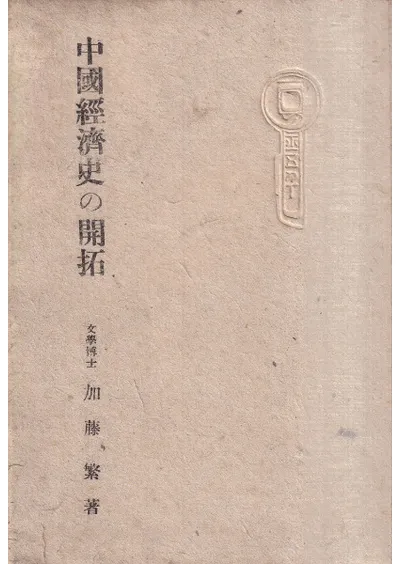 中國經濟史の開拓
文學博士 加藤繁著